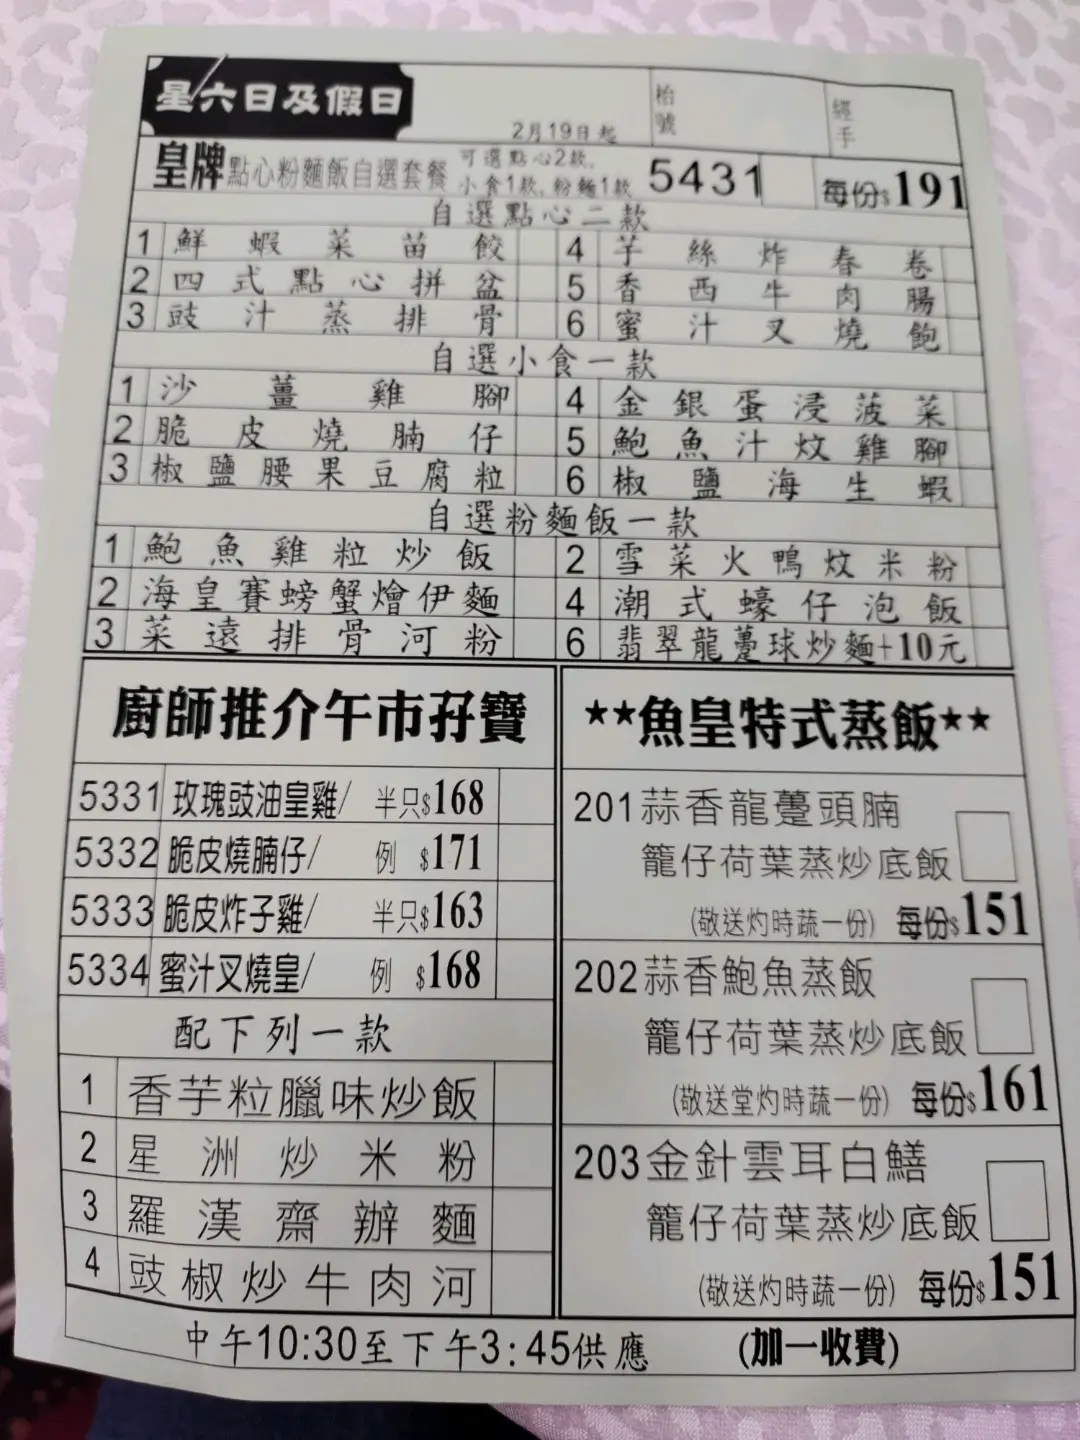 星六日及假日
2月19日起
枱號
經手
皇牌點心粉麵飯自選套餐
可選點心2款,
小食1款, 粉麵1款
5431
每份$191
自選點心二款
1 鮮蝦菜苗餃
4 芋絲炸春卷
2 四式點心拼盆
5 香西牛肉腸
3 豉汁蒸排骨
6 蜜汁叉燒飽
自選小食一款
1 沙薑雞腳
4 金銀蛋浸菠菜
2 脆皮燒腩仔
5 鮑魚汁炆雞腳
3 椒鹽腰果豆腐粒
6 椒鹽海生蝦
自選粉麵飯一款
1 鮑魚雞粒炒飯
2 雪菜火鴨炆米粉
2 海皇賽螃蟹燴伊麵
4 潮式蠔仔泡飯
3 菜遠排骨河粉
6 翡翠龍躉球炒麵+10元
廚師推介午市孖寶
5331 玫瑰豉油皇雞/ 半只$168
5332 脆皮燒腩仔/ 例 $171
5333 脆皮炸子雞/ 半只$163
5334 蜜汁叉燒皇/ 例 $168
配下列一款
1 香芋粒臘味炒飯
2 星洲炒米粉
3 羅漢齋辦麵
4 豉椒炒牛肉河
★★魚皇特式蒸飯★★
201蒜香龍躉頭腩
籠仔荷葉蒸炒底飯
(敬送灼時蔬一份) 每份$151
202蒜香鮑魚蒸飯
籠仔荷葉蒸炒底飯
(敬送堂灼時蔬一份) 每份$161
203金針雲耳白鱔
籠仔荷葉蒸炒底飯
(敬送灼時蔬一份) 每份$151
中午10:30至下午3:45供應 (加一收費)